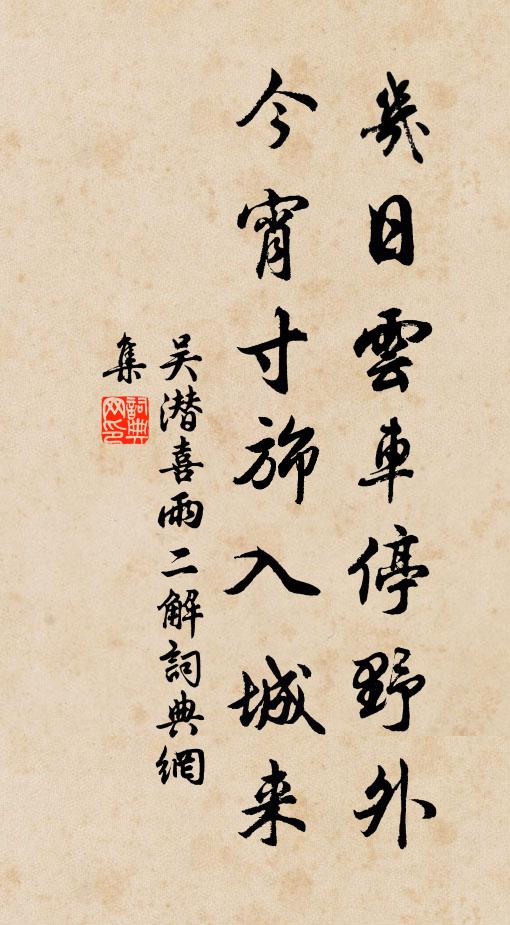 幾日雲車停野外
今宵寸旆入城来
吴潜喜雨二解詞典網
集
詞典
网印